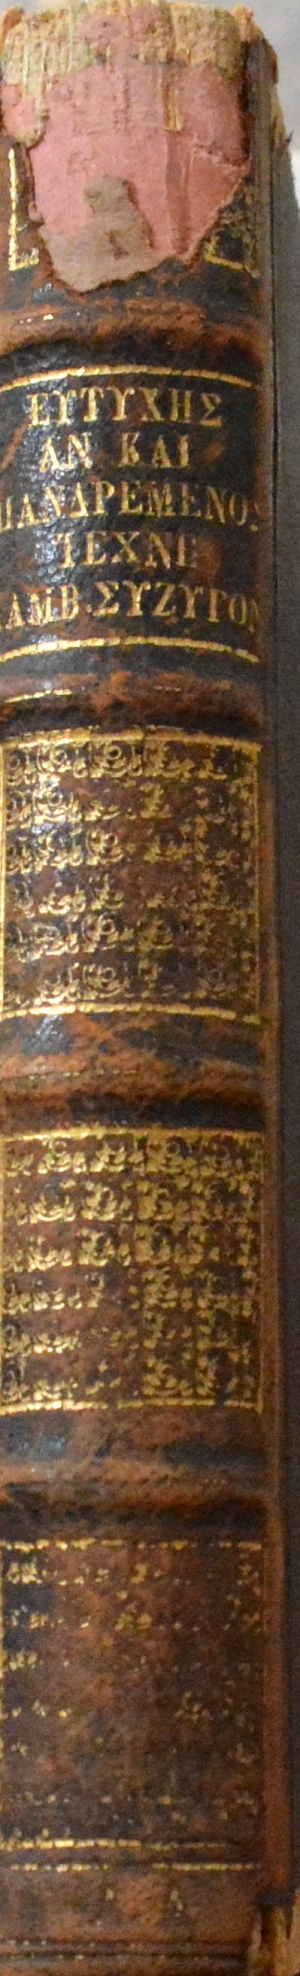 ΕΥΤΥΧΗΣ
ΑΝ ΚΑΙ
ΠΑΝΔΡΕΜΕΝΟΣ
ΤΕΧΝΗ
ΛΑΜΒ·ΣΥΖΥΓΟΝ